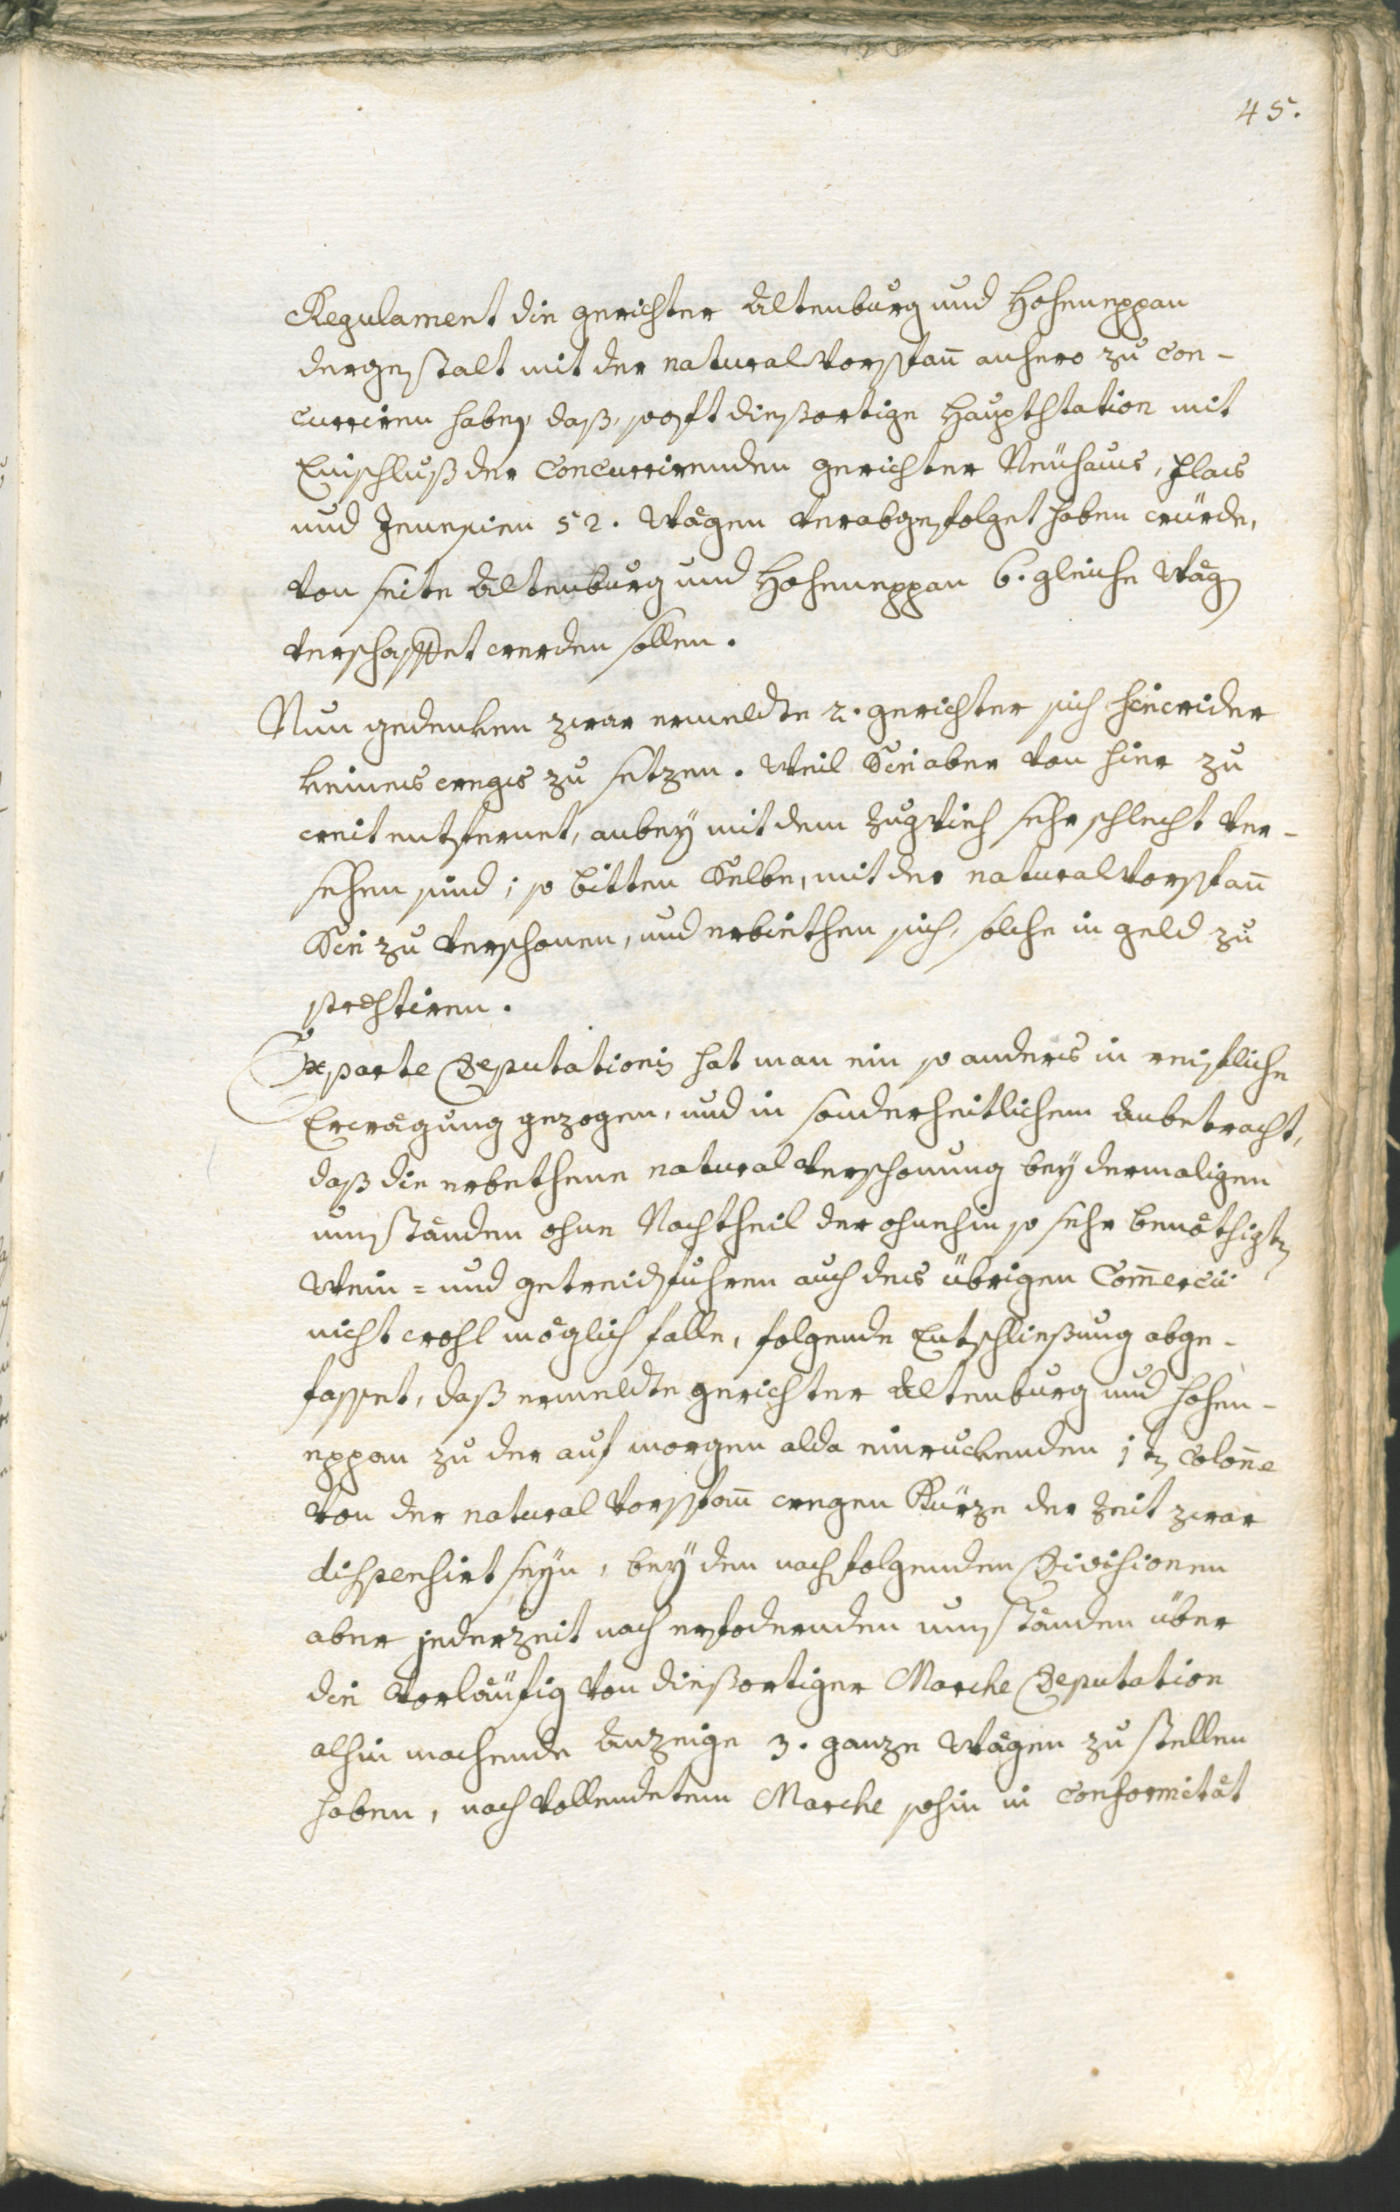 45.
Regulament die gerichter Altenburg und Hoheneppan
dergestalt mit der natural Vorspan̄ anhero zu con-
curriren haben, daß, so oft dießortige Haupthstation mit
Einschluß der Concurrirenden gerichter Neuhaus, Flaas
und Jenesien 52. Wägen verabgefolget haben würde,
von seite Altenburg und Hoheneppan 6. gleiche Wäg
verschaffet werden sollen.
Nun gedenken zwar ermeldte 2. gerichter sich hiewider
keines wegs zu setzen. Weil Sie aber von hier zu
weit entfernet, anbey mit dem Zugvieh sehr schlecht ver-
sehen sind; so bitten Selbe, mit der natural Vorspan̄
Sie zu verschonen, und erbiethen sich, solche in geld zu
prestiren.
Ex parte Deputationis hat man ein so anders in reifliche
Erwägung gezogen, und in sonderheitlichem Anbetracht,
daß die erbethene natural Verschonung bey dermaligen
umständen ohne Nachtheil der ohnehin so sehr benöthigten
Wein- und getreidfuhren auch des übrigen Com̄ercii
nicht wohl möglich falle, folgende Entschließung abge-
fasset, daß ermeldte gerichter Altenburg und Hohen-
eppan zu der auf morgen alda einruckenden 1ten Colon̄e
von der natural Vorspan̄ wegen Kürze der Zeit zwar
dispensirt seyn, bey den nachfolgenden Divisionen
aber jederzeit nach erfodernden umständen über
die vorläufig von dießortiger Marche Deputation
alhin machende Anzeige 3. ganze Wägen zu stellen
haben, nach vollendetem Marche sohin in Conformität